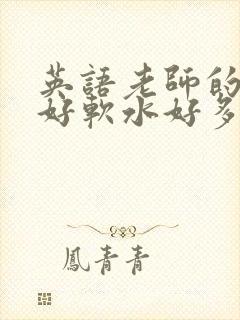 英語老師的
好軟水好多
鳳青青